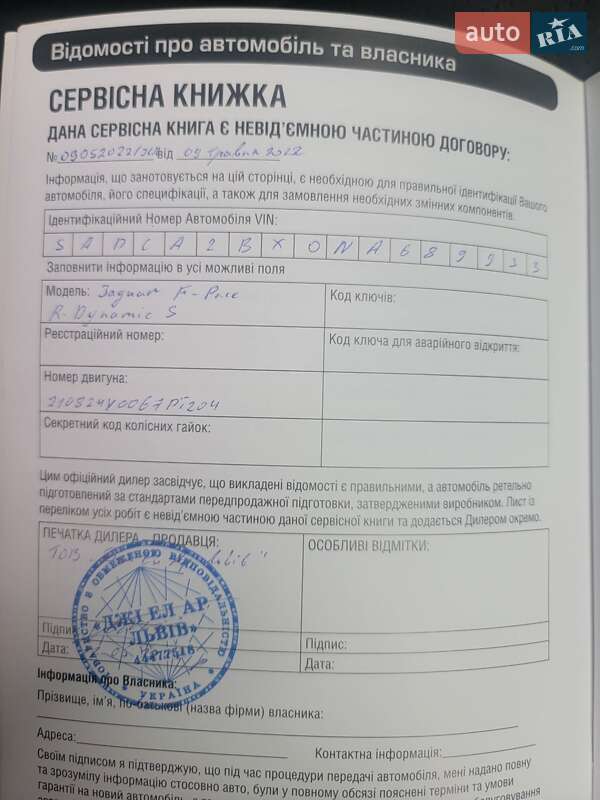 auto RIA.com
Відомості про автомобіль та власника
СЕРВІСНА КНИЖКА
ДАНА СЕРВІСНА КНИГА Є НЕВІД'ЄМНОЮ ЧАСТИНОЮ ДОГОВОРУ:
№ від 09 травня 2022
Інформація, що занотовується на цій сторінці, є необхідною для правильної ідентифікації Вашого
автомобіля, його специфікації, а також для замовлення необхідних змінних компонентів.
Ідентифікаційний Номер Автомобіля VIN:
S A D C A 2 B X 0 N A 6 8 9 9 3 3
Заповнити інформацію в усі можливі поля
Модель: Jaguar F-Pace
R-Dynamic S
Код ключів:
Реєстраційний номер:
Код ключа для аварійного відкриття:
Номер двигуна:
210324Y0067PT204
Секретний код колісних гайок:
Цим офіційний дилер засвідчує, що викладені відомості є правильними, а автомобіль ретельно
підготовлений за стандартами передпродажної підготовки, затвердженими виробником. Лист із
переліком усіх робіт є невід'ємною частиною даної сервісної книги та додається Дилером окремо.
ПЕЧАТКА ДИЛЕРА - ПРОДАВЦЯ:
ОСОБЛИВІ ВІДМІТКИ:
ТОВ Львів"
ТОВАРИСТВО З ОБМЕЖЕНОЮ ВІДПОВІДАЛЬНІСТЮ
«ДЖІ ЕЛ АР
ЛЬВІВ»
44477518
* УКРАЇНА *
Підпис
Підпис:
Дата:
Дата:
Інформація про Власника:
Прізвище, ім'я, по-батькові (назва фірми) власника:
Адреса:
Контактна інформація:
Своїм підписом я підтверджую, що під час процедури передачі автомобіля, мені надано повну
та зрозумілу інформацію стосовно авто, були у повному обсязі пояснені терміни та умови
гарантії на новий автомобіль